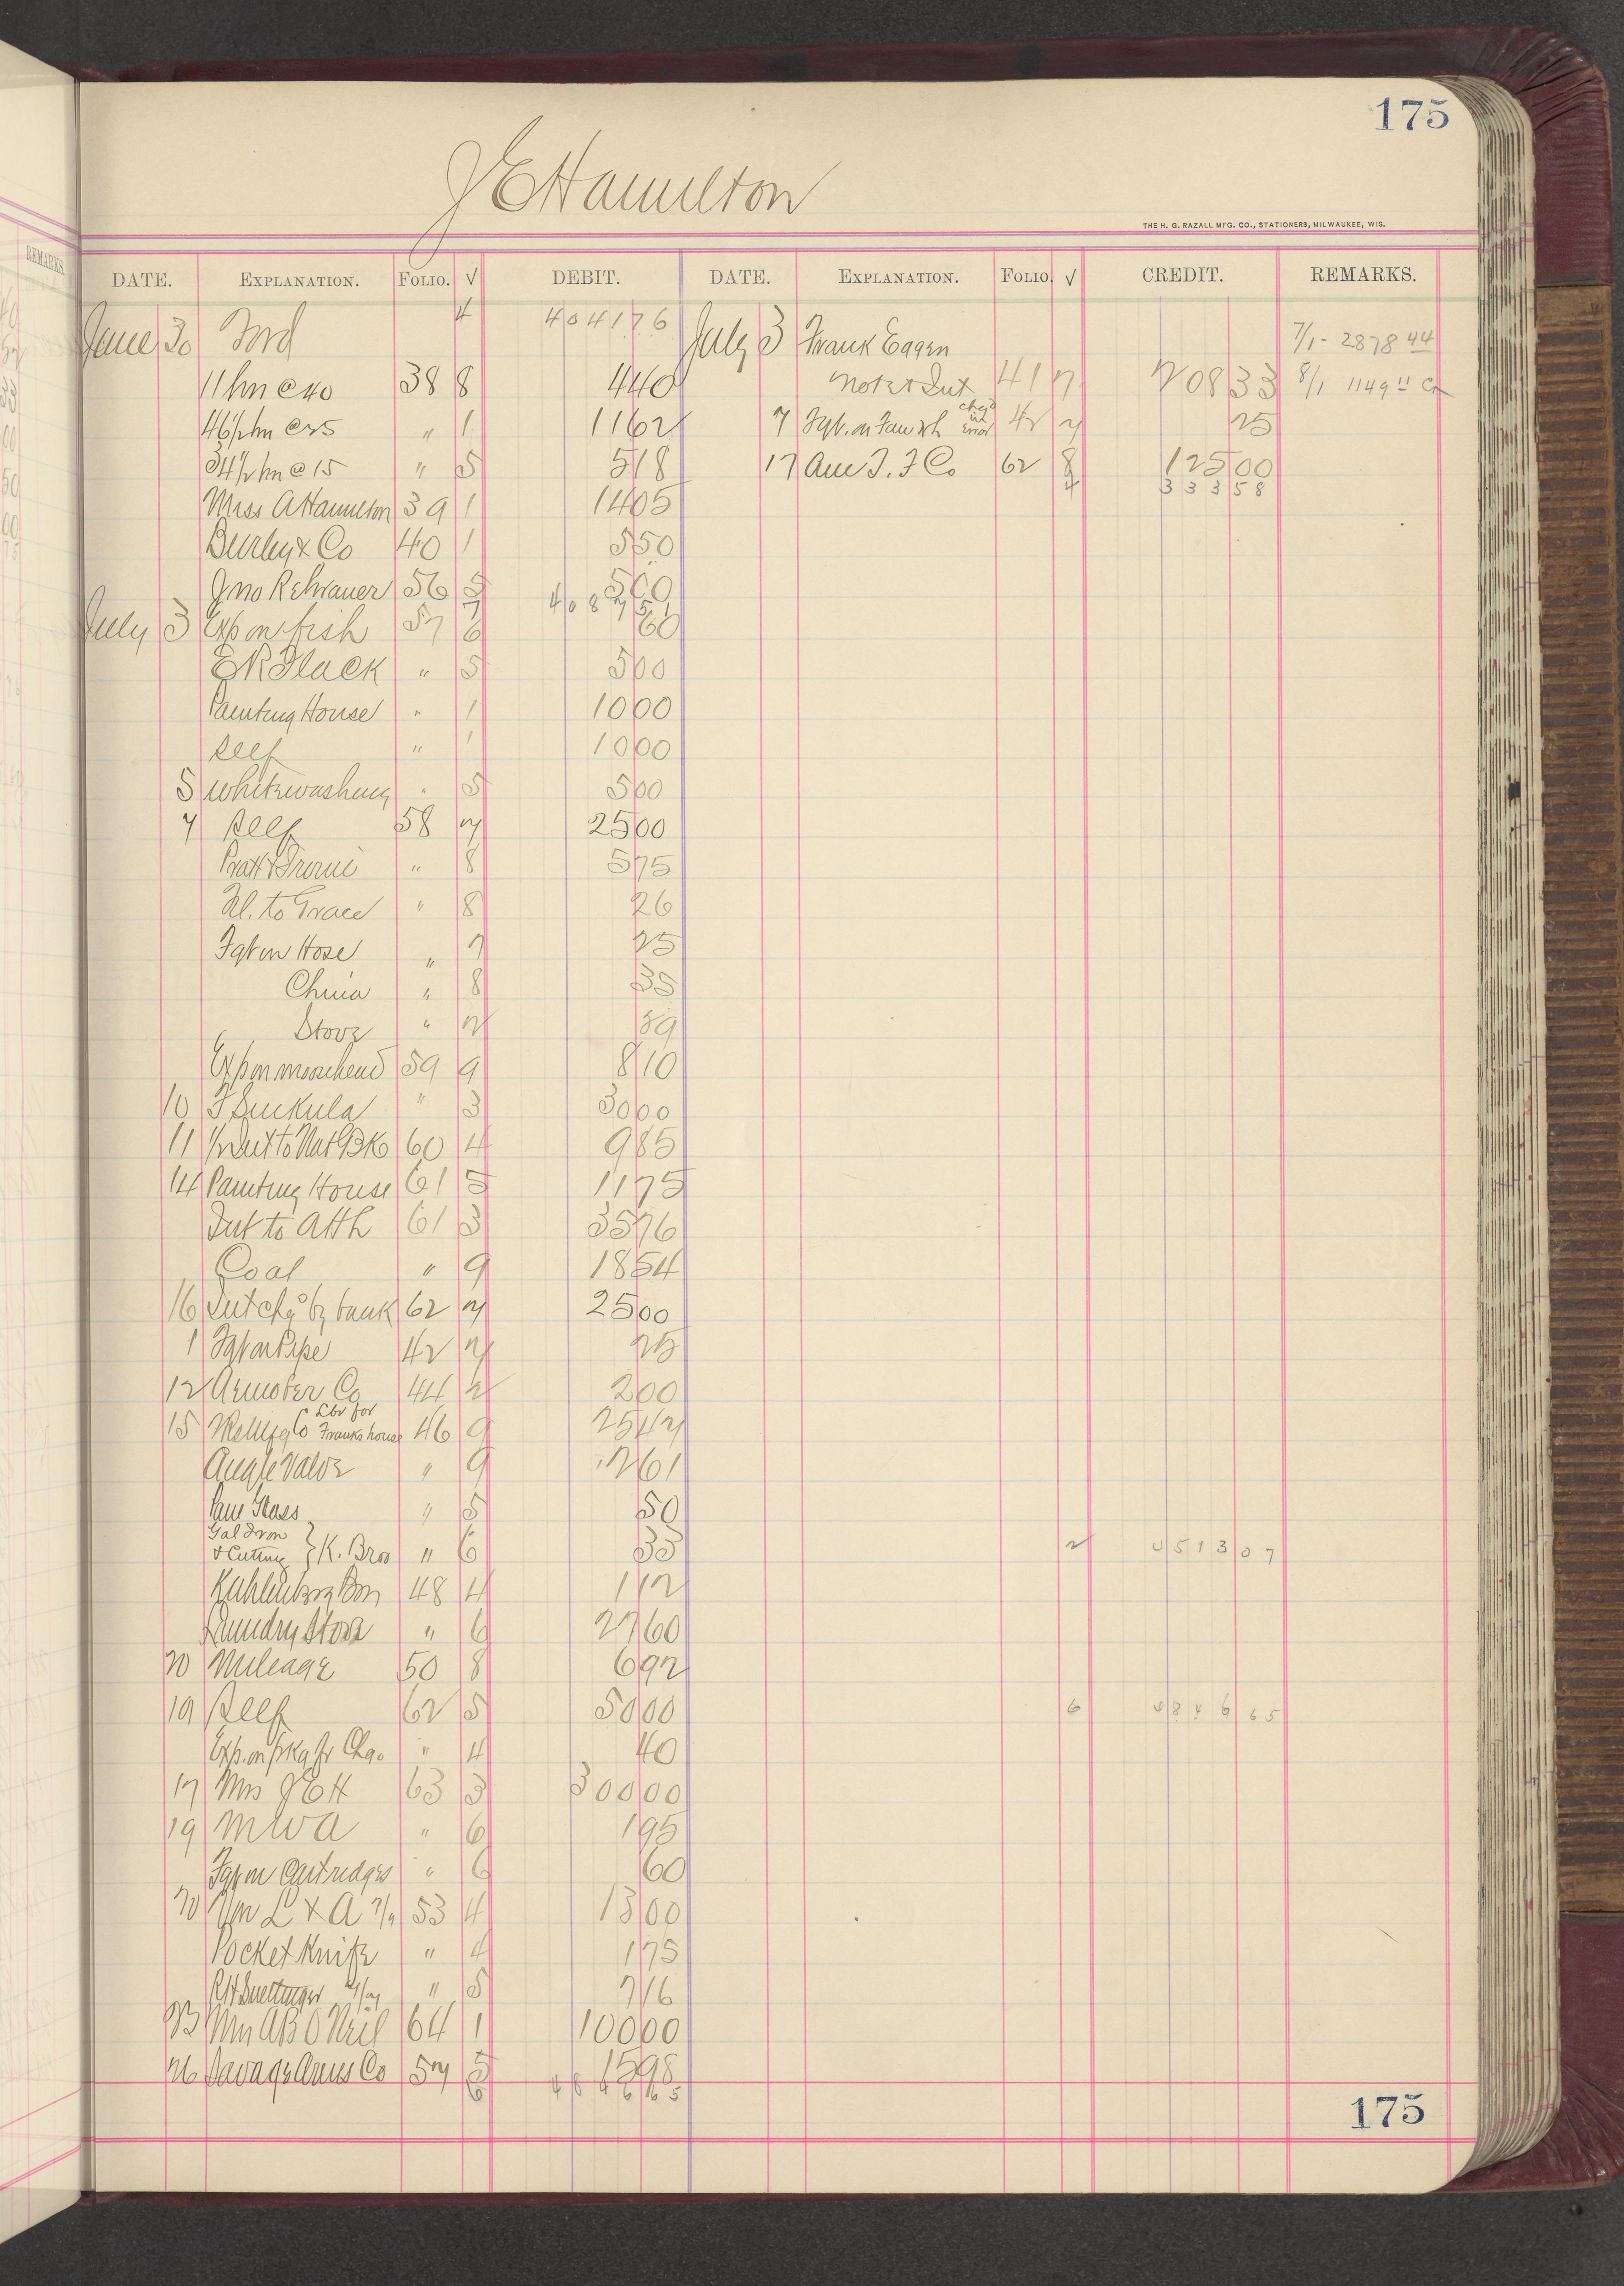 175
J E Hamilton
THE H. G. RAZALL MFG. CO., STATIONERS, MILWAUKEE, WIS.
DATE. EXPLANATION. FOLIO. √ DEBIT. DATE. EXPLANATION. FOLIO. √ CREDIT. REMARKS.
June 30 Ford 4 404176 July 3 Frank Eggen 7/1 - 2878 44
11 hrs @ 40 38 8 440 Note & Int 41 7 20833 8/1 1149 11 Cr
46½ hrs @ 25 " 1 1162 7 Fgt. on chgd in error 42 7 25
34½ hrs @ 15 " 5 518 17 Am T. F Co 62 8 12500
4 33358
Miss A Hamilton 39 1 1405
Burley & Co 40 1 550
Jno Rehrauer 56 5 500
7 408751
July 3 Exp on fish 57 6 60
E R Flack " 5 500
Painting House " 1 1000
Self " 1 1000
5 Whitewashing " 5 500
7 Self 58 7 2500
" 8 575
to Grace " 8 26
Fgt on Hose " 7 25
China " 8 35
Stove " 2 39
6 Exp on 59 9 810
10 " 3 3000
11 Int to Nat Bk 60 4 985
14 Painting House 61 5 1175
Int to AHH 61 3 3576
Coal " 9 1854
16 Int chgd by bank 62 7 2500
1 Fgt on Pipe 42 7 25
12 Co 44 2 200
15 Mfg Co Lbr for Franks house 46 9 2547
Angle Valve " 9 261
Pane Glass " 5 50
Gal Iron
& Cutting } K. Bros " 6 35 2 451307
Kahlenberg Bros 48 4 112
Laundry Stove " 6 2760
20 Mileage 50 8 692
19 Self 62 5 5000 6 484665
Exp. on pkg fr Chgo " 4 40
17 Mrs J E H 63 3 30000
19 M W A " 6 195
Fgt on Cartridges " 6 60
20 L & A 7/9 53 4 1300
Pocket Knife " 4 175
" 5 716
23 Mrs A B O Neil 64 1 10000
26 Savage Arms Co 57 5 1598
6 484665
175
REMARKS.